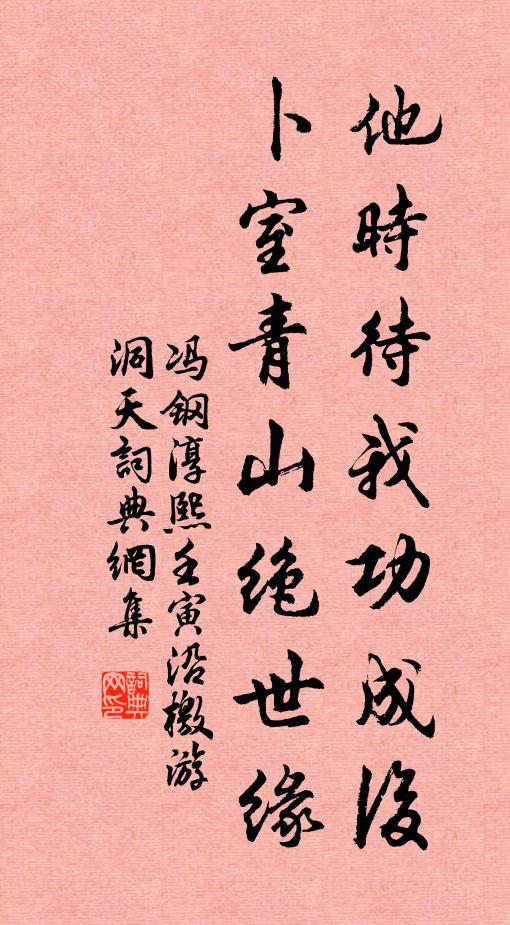 他時待我功成後
卜室青山絶世緣
冯鋼淳熙壬寅沿檄游
洞天詞典網集
詞典網印